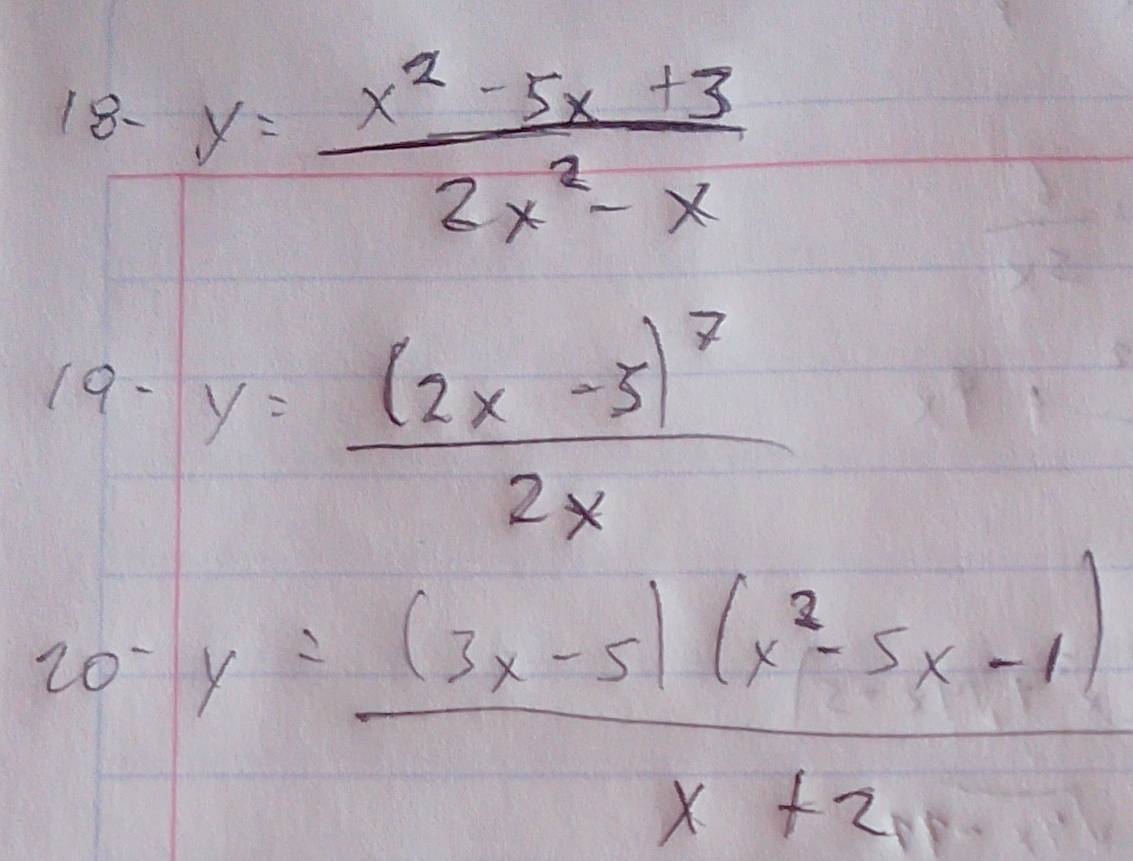 18- y = x² - 5x + 3
2x² - x
19- y = (2x - 5)⁷
2x
20- y = (3x - 5) (x² - 5x - 1)
x + 2